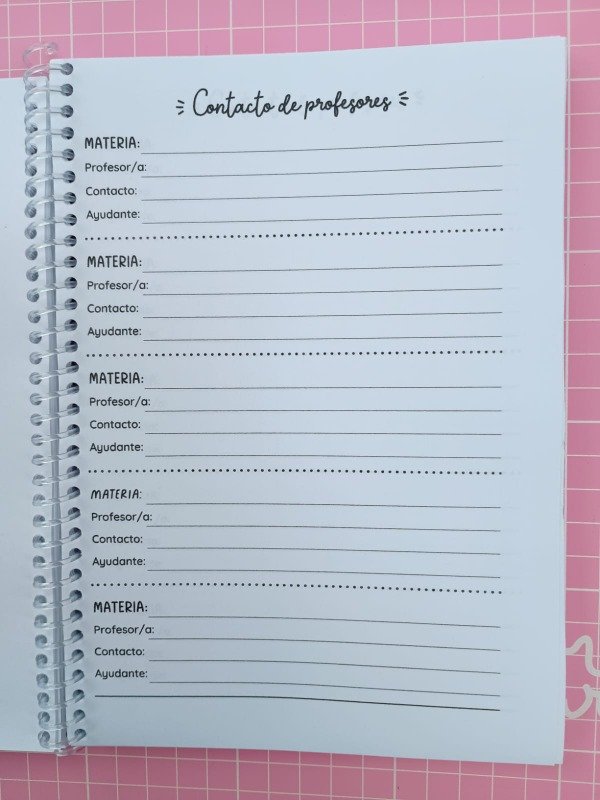 Contacto de profesores
MATERIA:
Profesor/a:
Contacto:
Ayudante:
MATERIA:
Profesor/a:
Contacto:
Ayudante:
MATERIA:
Profesor/a:
Contacto:
Ayudante:
MATERIA:
Profesor/a:
Contacto:
Ayudante:
MATERIA:
Profesor/a:
Contacto:
Ayudante: